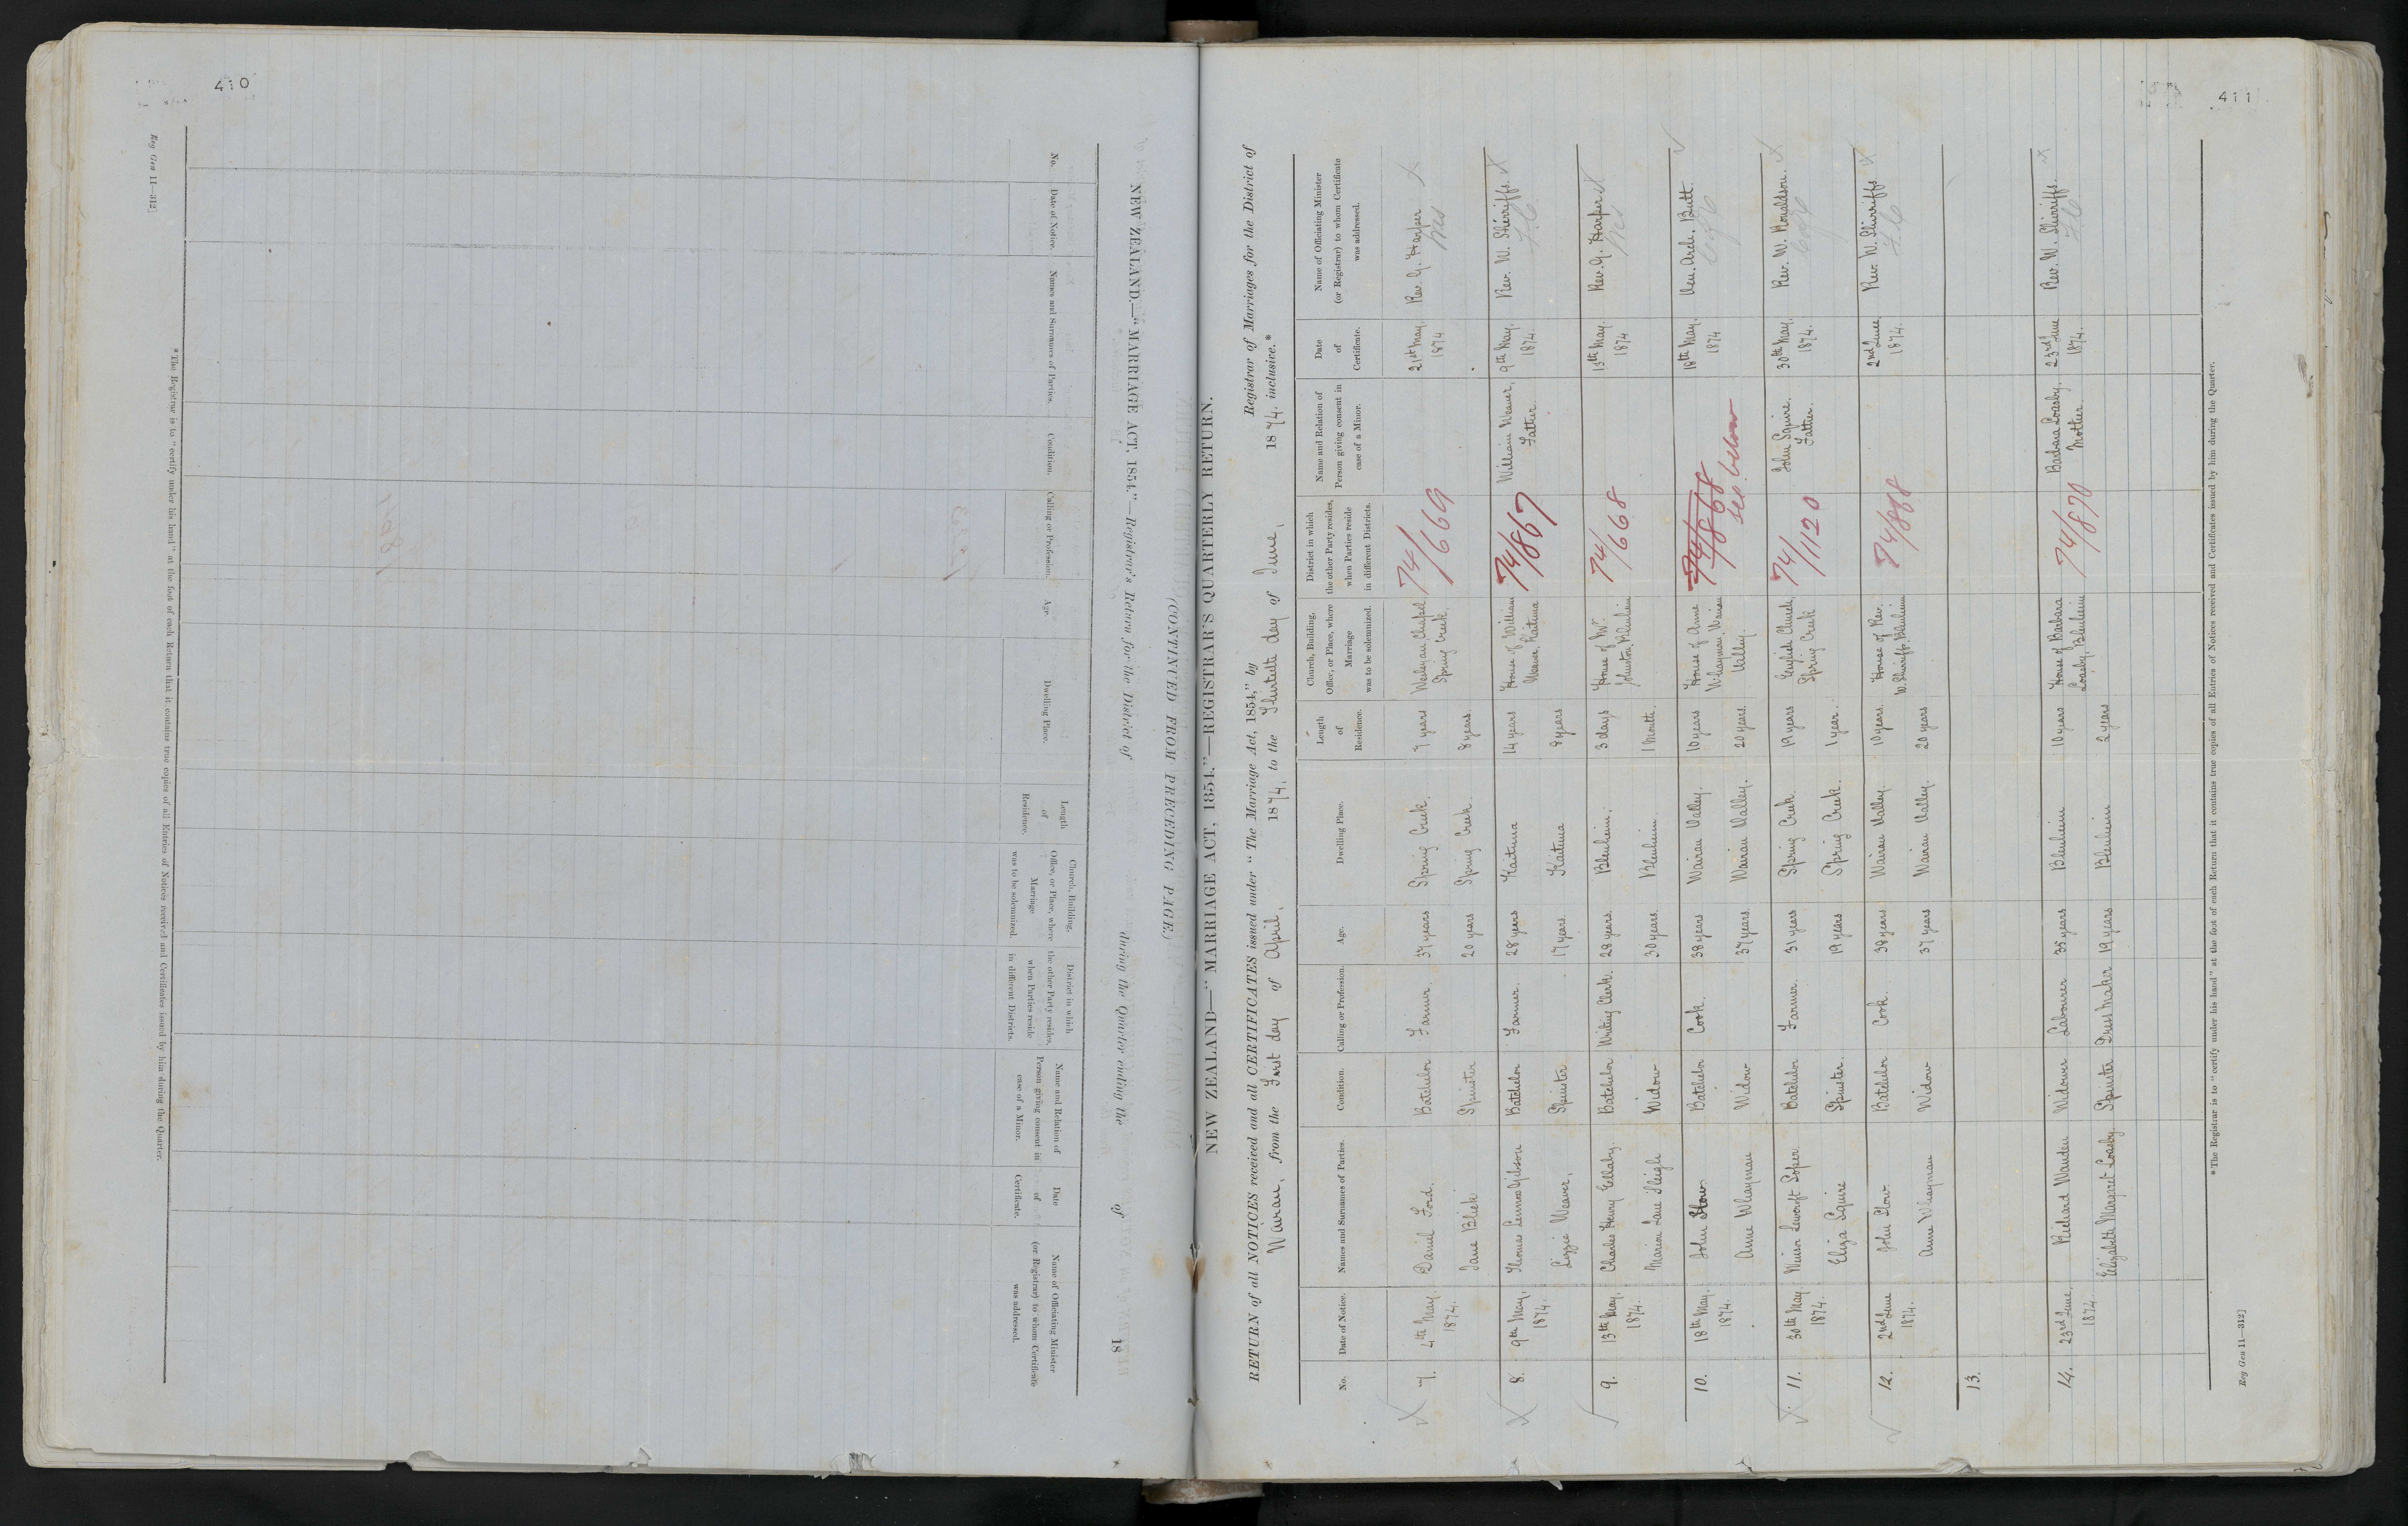 410
NEW ZEALAND.—"MARRIAGE ACT, 1854."—Registrar's Return for the District of during the Quarter ending the of 18
No.
Date of Notice.
Names and Surnames of Parties.
Condition.
Calling or Profession.
Age.
Dwelling Place.
Length of Residence.
Church, Building, Office, or Place, where Marriage was to be solemnized.
District in which the other Party resides, when Parties reside in different Districts.
Name and Relation of Person giving consent in case of a Minor.
Date of Certificate.
Name of Officiating Minister (or Registrar) to whom Certificate was addressed.
* The Registrar is to "certify under his hand" at the foot of each Return that it contains true copies of all Entries of Notices received and Certificates issued by him during the Quarter.
Reg Gen 11—312]
(CONTINUED FROM PRECEDING PAGE.)
411
NEW ZEALAND—"MARRIAGE ACT, 1854."—REGISTRAR'S QUARTERLY RETURN.
RETURN of all NOTICES received and all CERTIFICATES issued under "The Marriage Act, 1854," by Registrar of Marriages for the District of
Wairau, from the First day of April, 1874, to the Thirtieth day of June, 1874. inclusive.*
No.
Date of Notice.
Names and Surnames of Parties.
Condition.
Calling or Profession.
Age.
Dwelling Place.
Length of Residence.
Church, Building, Office, or Place, where Marriage was to be solemnized.
District in which the other Party resides, when Parties reside in different Districts.
Name and Relation of Person giving consent in case of a Minor.
Date of Certificate.
Name of Officiating Minister (or Registrar) to whom Certificate was addressed.
7. 4th May, 1874. Daniel Ford. Batchelor Farmer. 37 years Spring Creek. 7 years Wesleyan Chapel Spring Creek. 74/669 21st May, 1874 Rev. G. Harper Wes
Jane Bliek Spinster 20 years Spring Creek. 8 years.
8. 9th May, 1874. Thomas Lennox Gibson Batchelor Farmer. 28 years Kaituna 14 years House of William Weaver, Kaituna 74/867 William Weaver, Father. 9th May, 1874. Rev. W. Sherriffs. F.C
Lizzie Weaver. Spinster 17 years. Kaituna 8 years
9. 13th May, 1874. Charles Henry Ellaby. Batchelor Writing Clerk. 28 years. Blenheim. 3 days House of Mr. Johnston, Blenheim 74/668 13th May. 1874 Rev. G. Harper Wes
Marion Jane Sleigh Widow 30 years. Blenheim. 1 Month.
10. 18th May, 1874. John Stow Batchelor Cook. 38 years Wairau Valley. 10 years House of Anne Whayman, Wairau Valley 74/868 see below 18th May. 1874 Ven. Arch. Butt.
Anne Whayman Widow 37 years. Wairau Valley. 20 years.
11. 30th May, 1874. Batchelor Farmer. 31 years Spring Creek. 19 years English Church, Spring Creek 74/1120 John Squire. Father. 30th May, 1874. Rev. W. Ronaldson.
Eliza Squire Spinster. 19 years Spring Creek. 1 year.
12. 2nd June 1874. John Stow. Batchelor Cook. 38 years. Wairau Valley. 10 years. House of Rev. W. Sherriffs, Blenheim 74/868 2nd June, 1874. Rev. W. Sherriffs. F.C
Anne Whayman Widow 37 years Wairau Valley. 20 years
13.
14. 23rd June, 1874 Richard Warden Widower Labourer 35 years Blenheim 10 years House of Barbara Loasby, Blenheim 74/870 Barbara Loasby. Mother. 23rd June 1874. Rev. W. Sherriffs. F.C
Elizabeth Margaret Loasby Spinster Dress Maker 19 years Blenheim 2 years
* The Registrar is to "certify under his hand" at the foot of each Return that it contains true copies of all Entries of Notices received and Certificates issued by him during the Quarter.
Reg Gen 11—312]